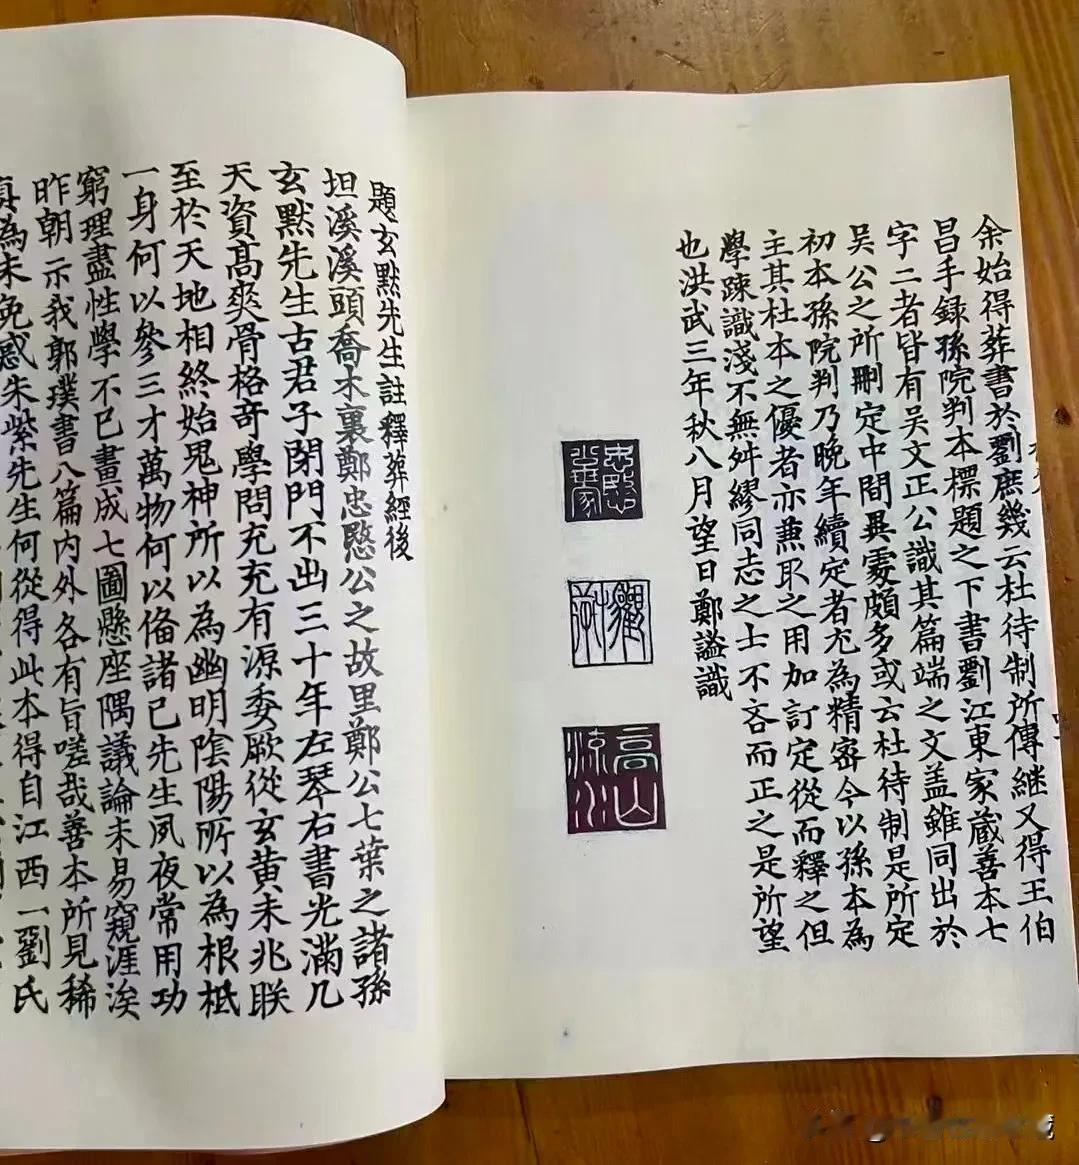 余始得葬書於劉庶幾云杜待制所傳継又得王伯
昌手録孫院判本標題之下書劉江東家蔵善本七
字二者皆有吴文正公識其篇端之文盖雖同出於
吴公之所刪定中間異處頗多或云杜待制是所定
初本孫院判乃晚年續定者尤為精宻今以孫本為
主其杜本之優者亦兼取之用加訂定從而釋之但
學踈識淺不無舛繆同志之士不吝而正之是所望
也洪武三年秋八月望日鄭謐識
高山流水
題玄默先生註釋葬經後
坦溪溪頭喬木裏鄭忠愍公之故里鄭公七葉之諸孫
玄默先生古君子閉門不出三十年左琴右書光滿几
天資髙爽骨格竒學問充充有源委厥從玄黄未兆朕
至於天地相終始鬼神所以為幽明陰陽所以為根柢
一身何以參三才萬物何以俻諸已先生夙夜常用功
窮理盡性學不已畫成七圖懸座隅議論未易窺涯涘
昨朝示我郭璞書八篇内外各有旨嗟哉善本所見稀
真為未免惑朱紫先生何從得此本得自江西一劉氏